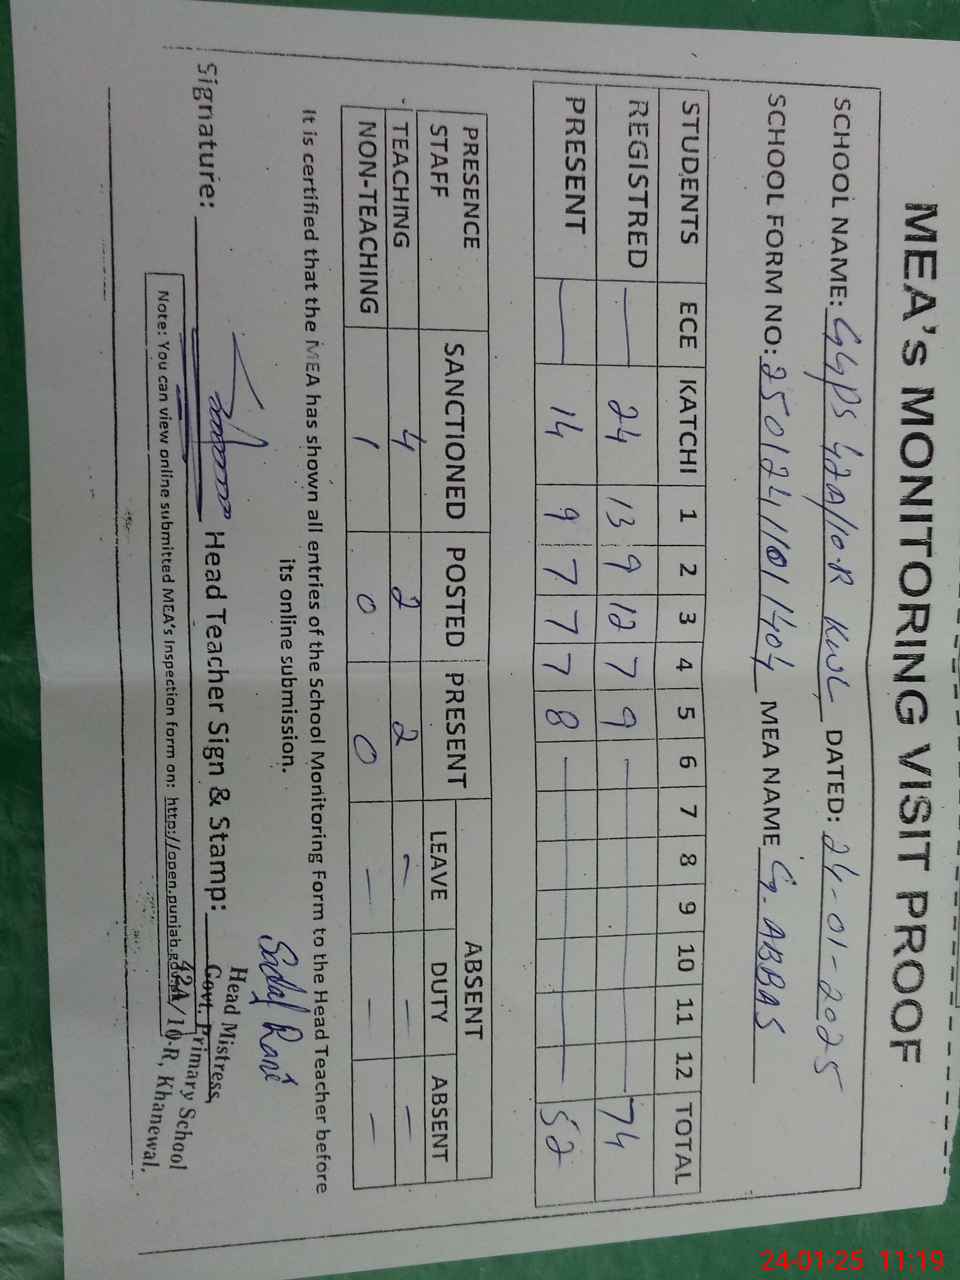 MEA's MONITORING VISIT PROOF
SCHOOL NAME: GGPS 42A/10-R KWL DATED: 24-01-2025
SCHOOL FORM NO: MEA NAME G. ABBAS
STUDENTS ECE KATCHI 1 2 3 4 5 6 7 8 9 10 11 12 TOTAL
REGISTRED — 24 13 9 12 7 9 — 74
PRESENT — 14 9 7 7 7 8 — 52
PRESENCE STAFF SANCTIONED POSTED PRESENT ABSENT
LEAVE DUTY ABSENT
TEACHING 4 2 2 – – –
NON-TEACHING 1 0 0 – – –
It is certified that the MEA has shown all entries of the School Monitoring Form to the Head Teacher before
its online submission.
Sadaf Rani
Signature: Head Teacher Sign & Stamp:
Head Mistress,
Govt. Primary School
42A/10-R, Khanewal.
Note: You can view online submitted MEA's Inspection form on: http://open.punjab.gov.pk
24-01-25 11:19